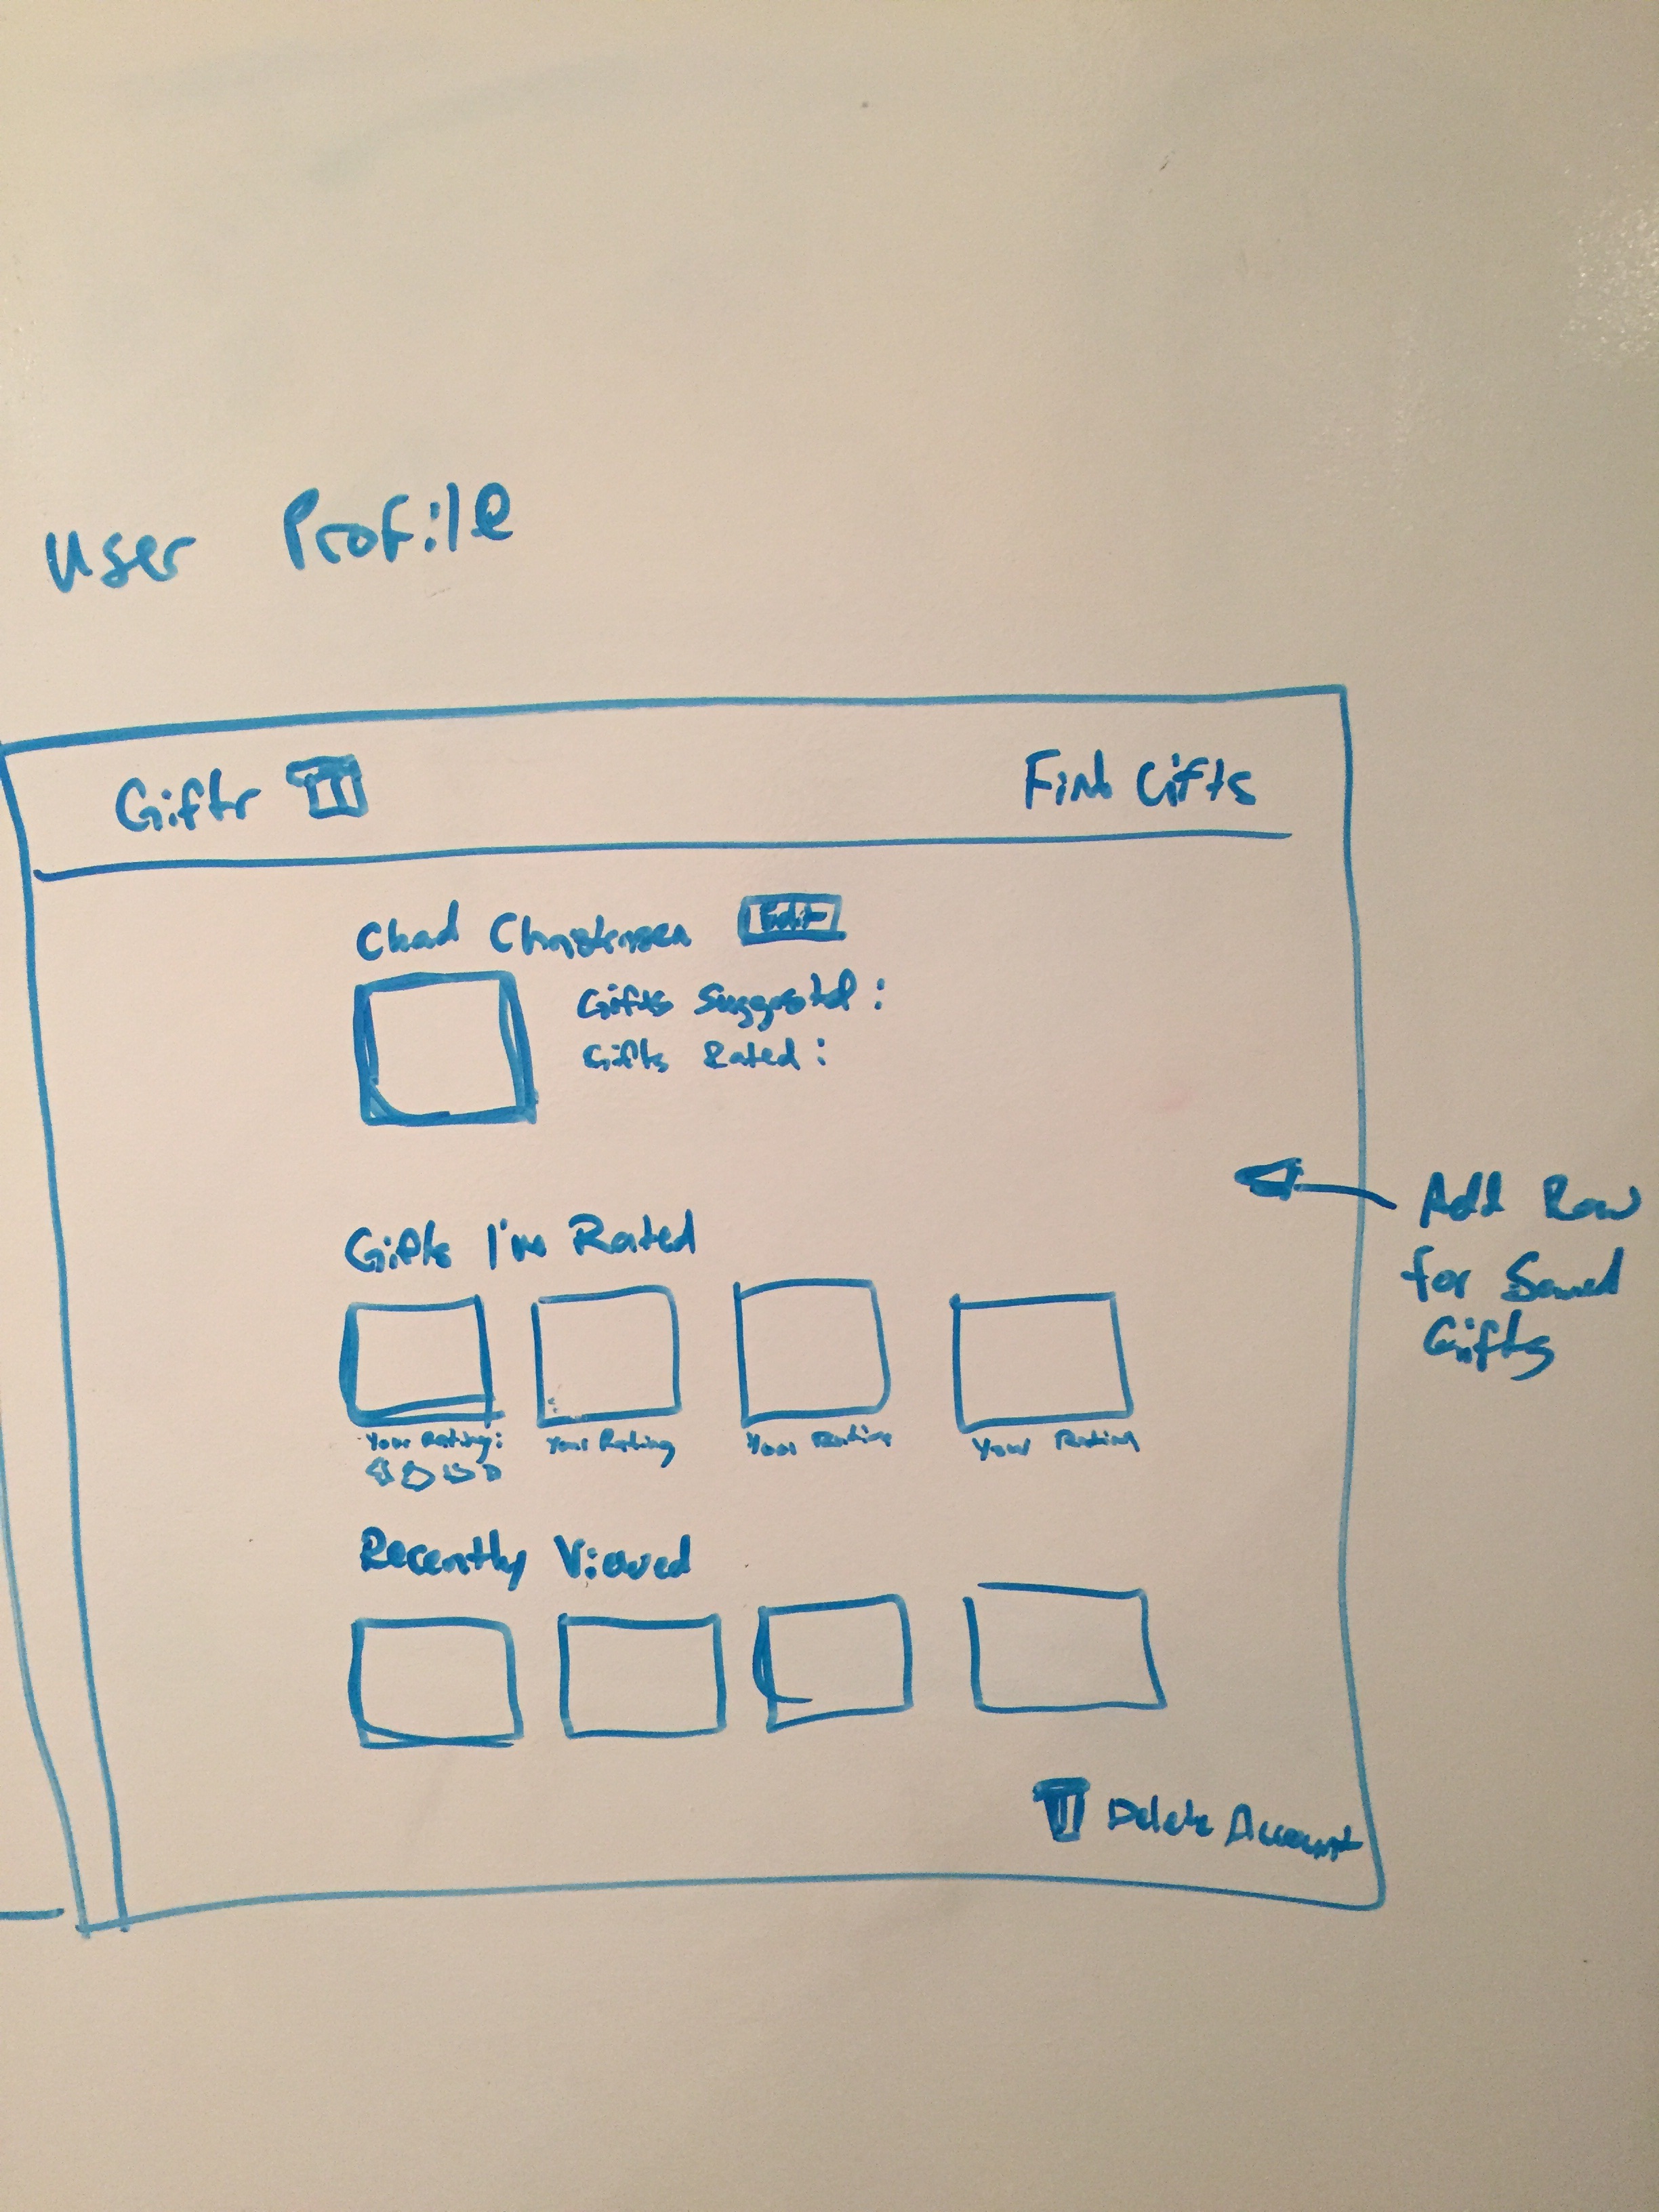 User Profile
Giftr
Find Gifts
Chad Christensen
Edit
Gifts Suggested:
Gifts Rated:
Add Row
for Saved
Gifts
Gifts I'm Rated
Your Rating:
Your Rating
Your Rating
Your Rating
Recently Viewed
Delete Account